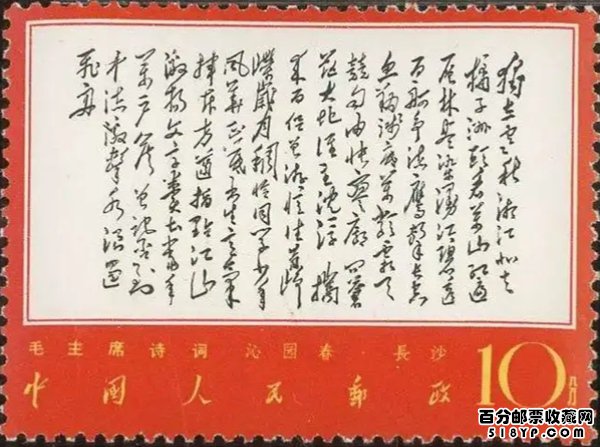 独立寒秋湘江北去
橘子洲头看万山红遍
层林尽染漫江碧透
百舸争流鹰击长空
鱼翔浅底万类霜天
竞自由怅寥廓问苍
茫大地谁主沉浮 携
来百侣曾游忆往昔峥
嵘岁月稠恰同学少年
风华正茂书生意气
挥斥方遒指点江山
激扬文字粪土当年
万户侯曾记否到
中流击水浪遏
飞舟
毛主席诗词 沁园春·長沙
中國人民郵政 10分
百分邮票收藏网
518YP.com